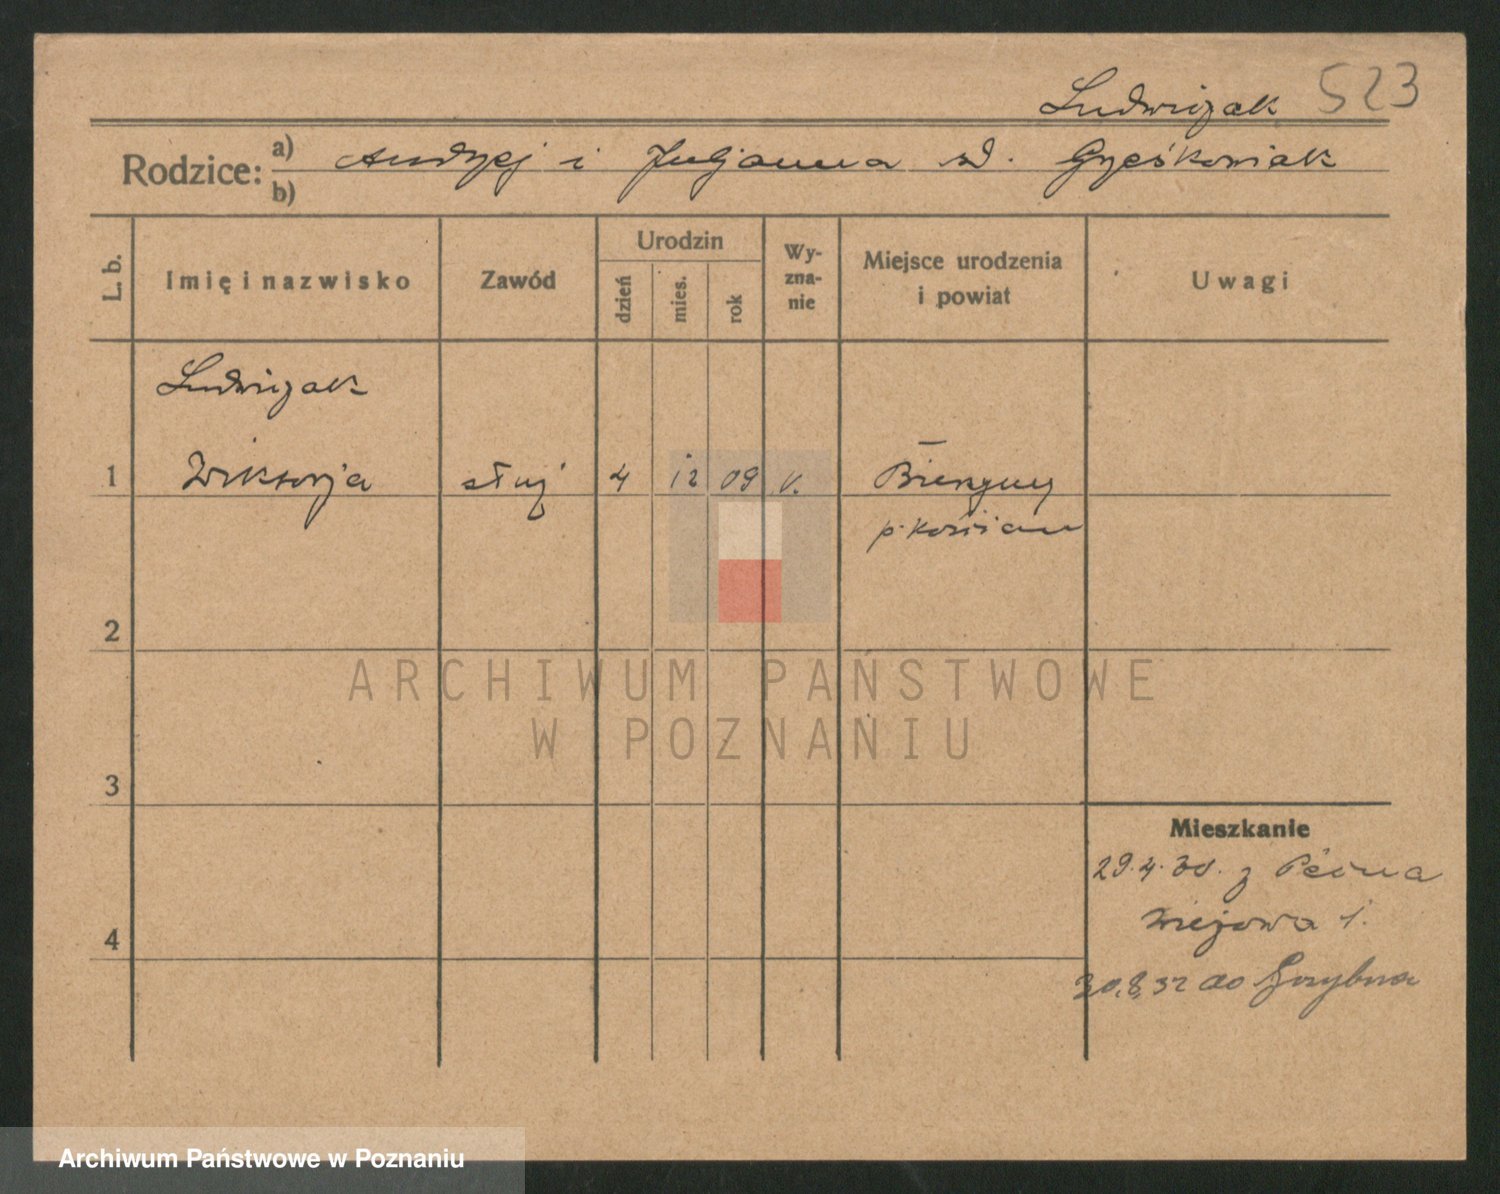 Ludwiczak 523
Rodzice: a) Andrzej i Juljanna
b)
L. b.
Imię i nazwisko
Zawód
Urodzin
dzień
mies.
rok
Wy-
zna-
nie
Miejsce urodzenia
i powiat
Uwagi
Ludwiczak
1 Wiktorja służ 4 12 09
p. Kościan
2
3
4
Mieszkanie
29.4.30. z
1.
30.8.32 do
ARCHIWUM PAŃSTWOWE
W POZNANIU
Archiwum Państwowe w Poznaniu